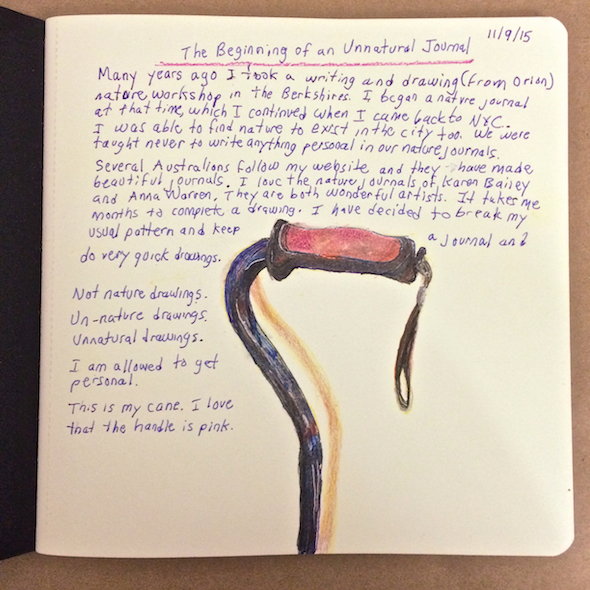 11/9/15
The Beginning of an Unnatural Journal
Many years ago I took a writing and drawing (from Orion)
nature workshop in the Berkshires. I began a nature journal
at that time, which I continued when I came back to NYC.
I was able to find nature to exist in the city too. We were
taught never to write anything personal in our nature journals.
Several Australians follow my website and they have made
beautiful journals. I love the nature journals of Karen Bailey
and Anna Warren. They are both wonderful artists. It takes me
months to complete a drawing. I have decided to break my
usual pattern and keep a journal and
do very quick drawings.
Not nature drawings.
Un-nature drawings.
Unnatural drawings.
I am allowed to get
personal.
This is my cane. I love
that the handle is pink.